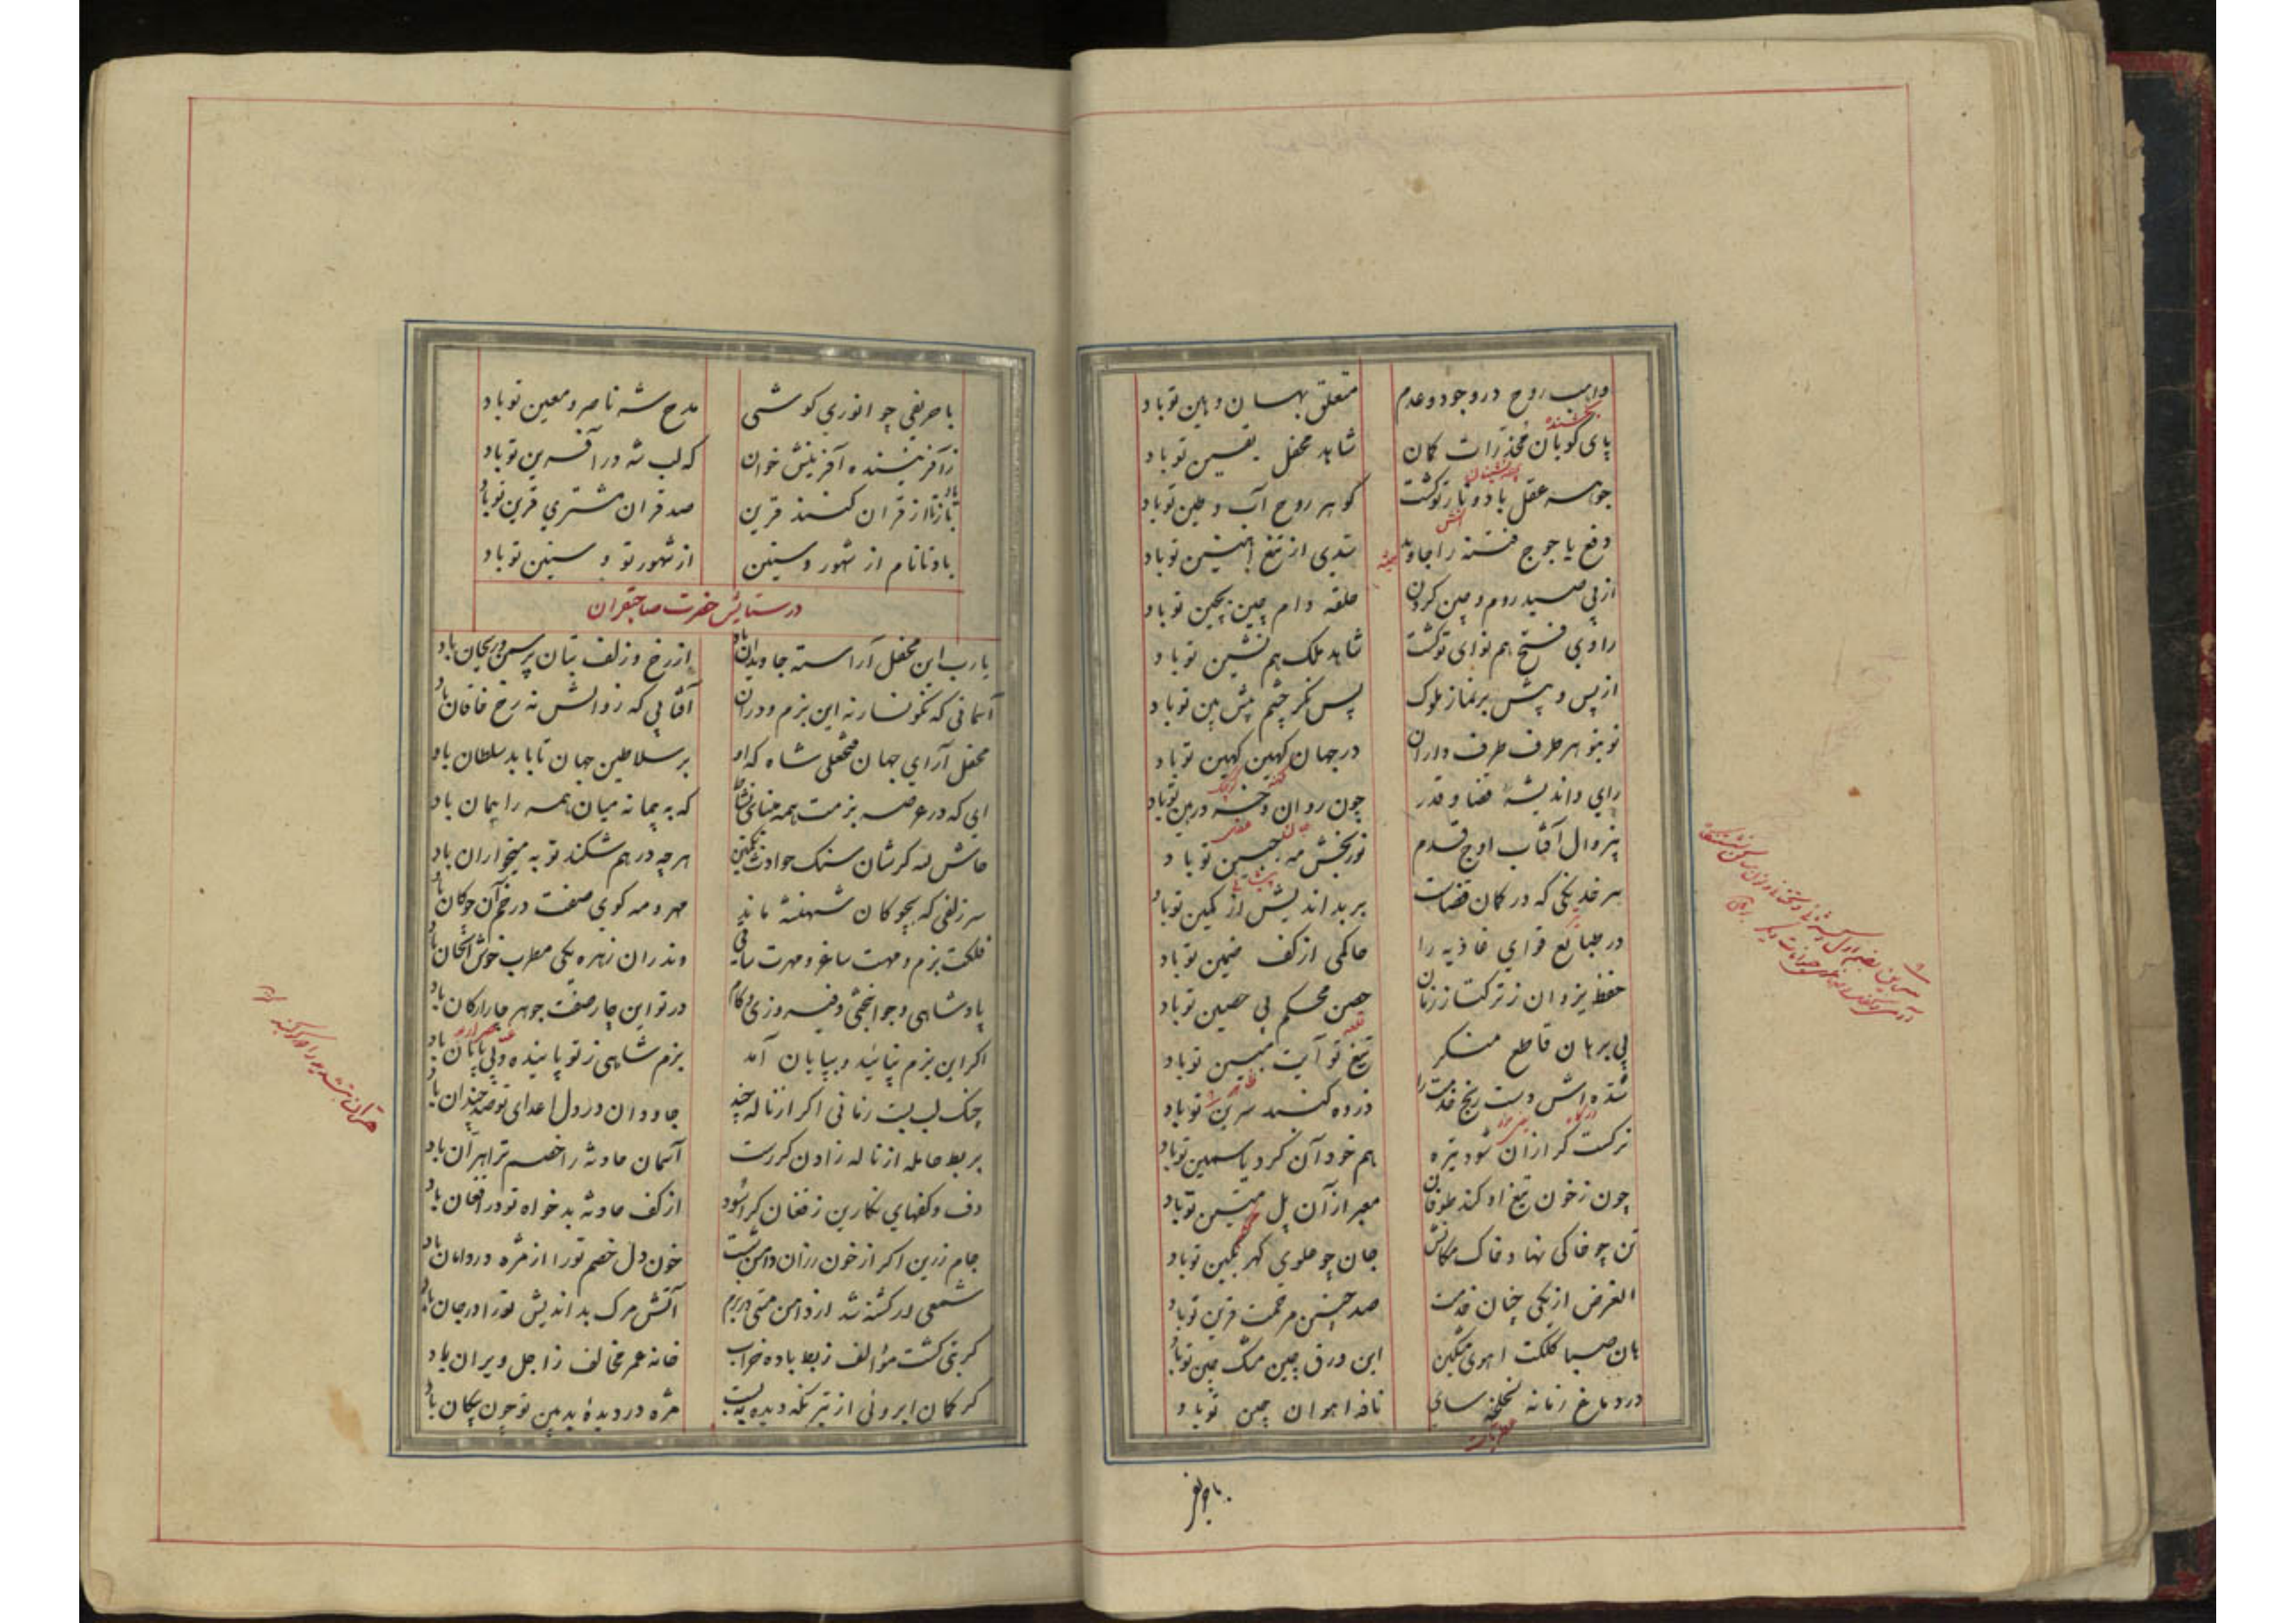 واهب روح در وجود و عدم متعلق بهسان و هین تو باد
بخشنده
پای کوبان مخدرات کان شاهد محفل یقین تو باد
پرده نشینان
جوهر عقل باد و نار تو گشت گوهر روح آب و طین تو باد
آتش
دفع یاجوج فتنه را جاوید سدی از تیغ آهنین تو باد
همیشه
از پی صید روم و چین کردن حلقه دام چین بچین تو باد
راوی فتح هم نوای تو گشت شاهد ملک هم نشین تو باد
از پس و پیش بر نماز ملوک پس نگر چشم پیش بین تو باد
نو بنو هر طرف طرف داران در جهان کهین کهین تو باد
رای و اندیشهٔ قضا و قدر چون روان و خرد رهین تو باد
بزوال آفتاب اوج قدم نور بخش مه جبین تو باد
هر خدنگی که در کمان قضاست بر بداندیش از کمین تو باد
در طبایع قوای غاذیه را حاکمی از کف ضمین تو باد
حفظ یزدان ز ترکتاز زمان حصن محکم پی حصین تو باد
قلعه
پی برهان قاطع منکر تیغ تو آیت مبین تو باد
ظاهر
شده اش دست رنج خدمت را ذروه گنبد سرین تو باد
نرگست گر از آن شود تیره هم خود آن گرد یاسمین تو باد
چون ز خون تیغ او کند طوفان معبر از آن پل متین تو باد
محکم
تن چو خاکی نهاد خاک مکانش جان چو علوی گهر مکین تو باد
الغرض از یکی چنان خدمت صد چنین مرحمت قرین تو باد
هان صبا کلکت آهوی مشکین این ورق چین مشک چین تو باد
در دماغ زمانه لخلخه سای نافه آهوان چین تو باد
با حریفی چو انوری کوشی مدح شه ناصر و معین تو باد
ز آفریننده آفرینش خوان که لب شه در آفرین تو باد
باز تا از قران کنند قرین صد قران مشتری قرین تو باد
باد تا نام از شهور و سنین از شهور تو و سنین تو باد
در ستایش حضرت صاحبقران
یا رب این محفل آراسته جاویدان باد از رخ و زلف بتان پر سمن و ریحان باد
آسمانی که نگونسار نه این بزم و در آن آفتابی که زوالش نه رخ خاقان باد
محفل آرای جهان فتحعلی شاه که او بر سلاطین جهان تا بابد سلطان باد
ای که در عرصه بزمت همه مینای نشاط که به پیمانه میان همه را پیمان باد
حاش لله گرشان سنگ حوادث شکنی هر چه در هم شکند توبه میخواران باد
سر زلفی که بچوگان شهنشه ماند مهر و مه گوی صفت در خم آن چوگان باد
فلکت بزم و مهت ساغر و مهرت ساقی وندران زهره یکی مطرب خوش الحان باد
پادشاهی و جوانبختی و فیروزی و کام در تو این چار صفت جوهر چار ارکان باد
اگر این بزم نپائید و بپایان آمد بزم شاهی ز تو پاینده و بی پایان باد
چنگ لب بست زمانی اگر از ناله چند جاودان در دل اعدای تو صد چندان باد
بربط حامله از ناله زادن گر رست آسمان حادثه زا خصم ترا بهر آن باد
دف و کفهای نگارین ز فغان گر آسود از کف حادثه بدخواه تو در افغان باد
جام زرین اگر از خون رزان دامن شست خون دل خصم تو را از مژه در دامان باد
شمعی ار کشته شد از دامن مستی در بزم آتش مرگ بداندیش تو را در جان باد
گر بنی گشت مؤالف ز بط باده خراب خانه عمر مخالف ز اجل ویران باد
گر کمان ابروئی از تیر نگه دیده ببست مژه در دیدهٔ بدبین تو چون پیکان باد